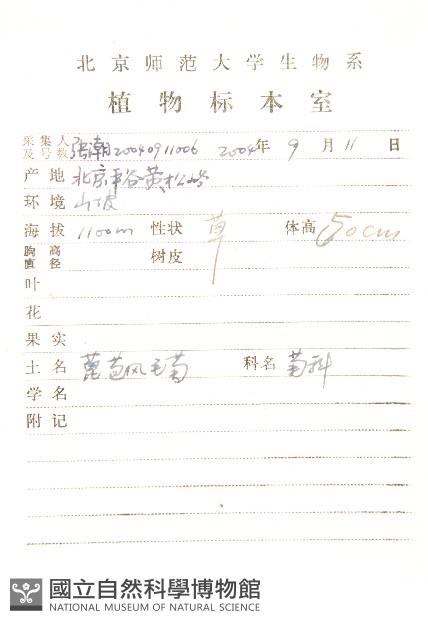 北京师范大学生物系
植物标本室
采集人及号数 张潮20040911006 2004年 9月11日
产地 北京平谷黄松峪
环境 山坡
海拔 1100m 性状 草 体高 50cm
胸高直径 树皮
叶
花
果实
土名 苞风毛菊 科名 菊科
学名
附记
國立自然科學博物館
NATIONAL MUSEUM OF NATURAL SCIENCE